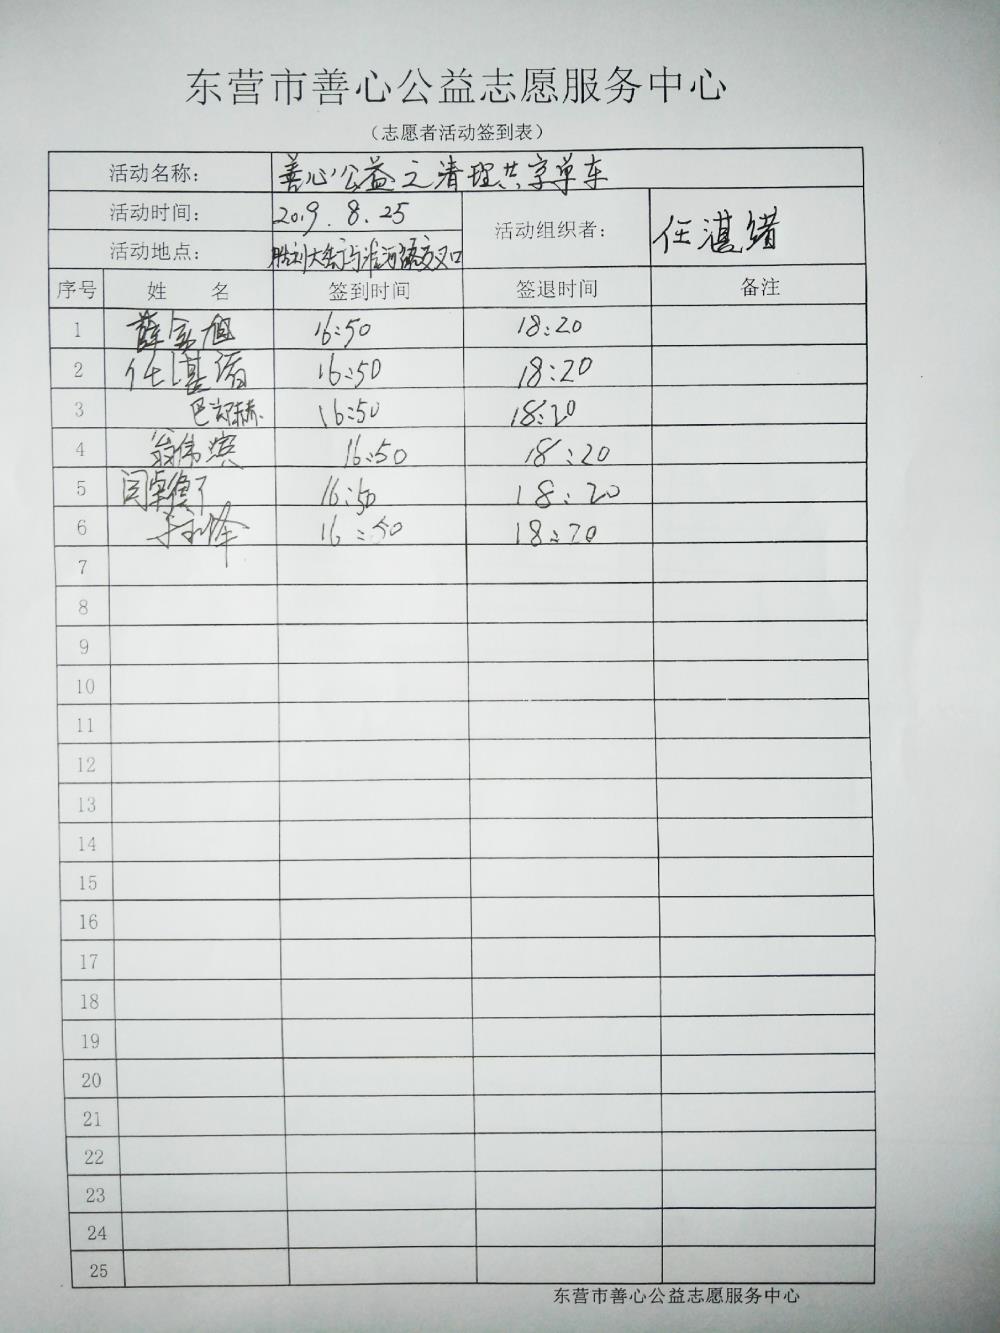 东营市善心公益志愿服务中心
（志愿者活动签到表）
活动名称： 善心公益之清理共享单车
活动时间： 2019.8.25 活动组织者： 任湛绪
活动地点： 胜利大街与淮河路交叉口
序号 姓 名 签到时间 签退时间 备注
1 薛 旭 16:50 18:20
2 任湛 16:50 18:20
3 巴 16:50 18:20
4 翁伟滨 16:50 18:20
5 闫 16:50 18:20
6 16:50 18:20
7
8
9
10
11
12
13
14
15
16
17
18
19
20
21
22
23
24
25
东营市善心公益志愿服务中心